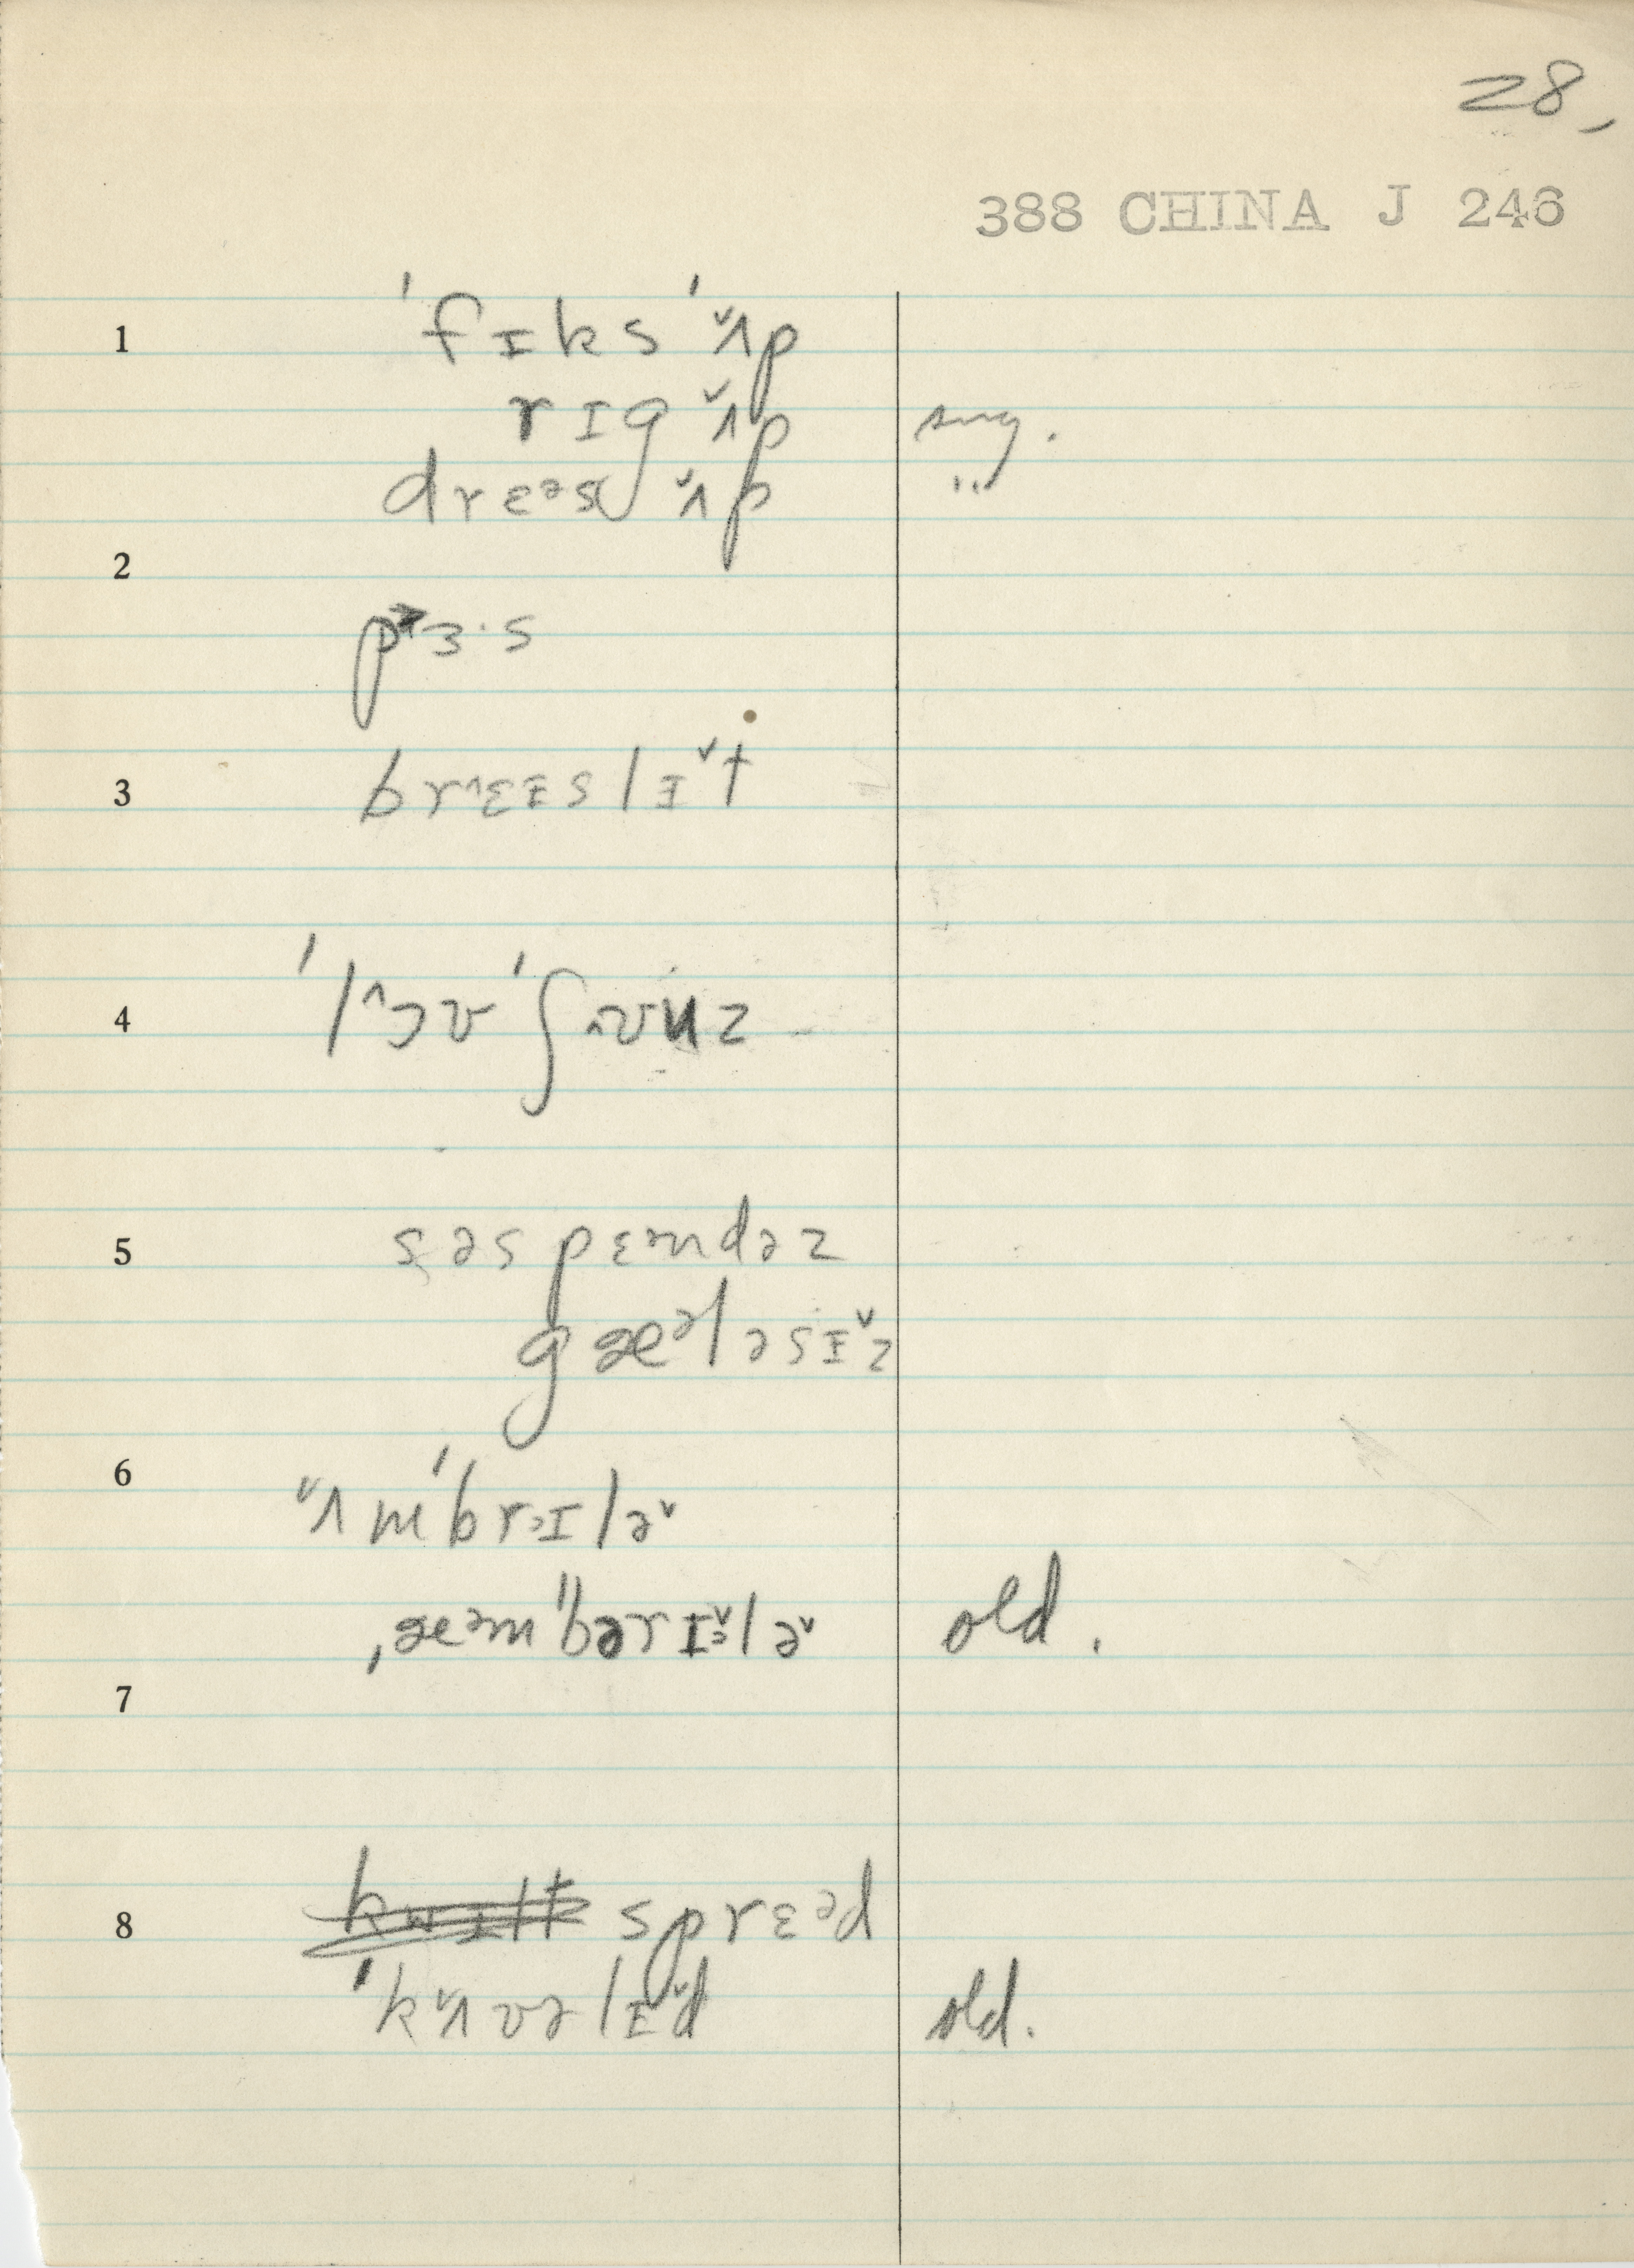 28,
388 CHINA J 246
1 ˈfɪksˈʌ̌p
rɪg ʌ̌p sug.
drɛᵊs ʌ̌p "
2
pɜ·s
3 brɛ^ɪslɪ̌t
4 ˈlɔ^ʊ ˈʃʊ^uz
5 səspɛᵊndəz
gæᵊləsɪ̌z
6 ʌ̌mˈbrɪᵊlə̌
ˌæᵊmˈbərɪ̌ᵊlə̌ old.
7
8 kwɪlt sprɛᵊd
ˈkʌ̌vəlɪ̌d old.